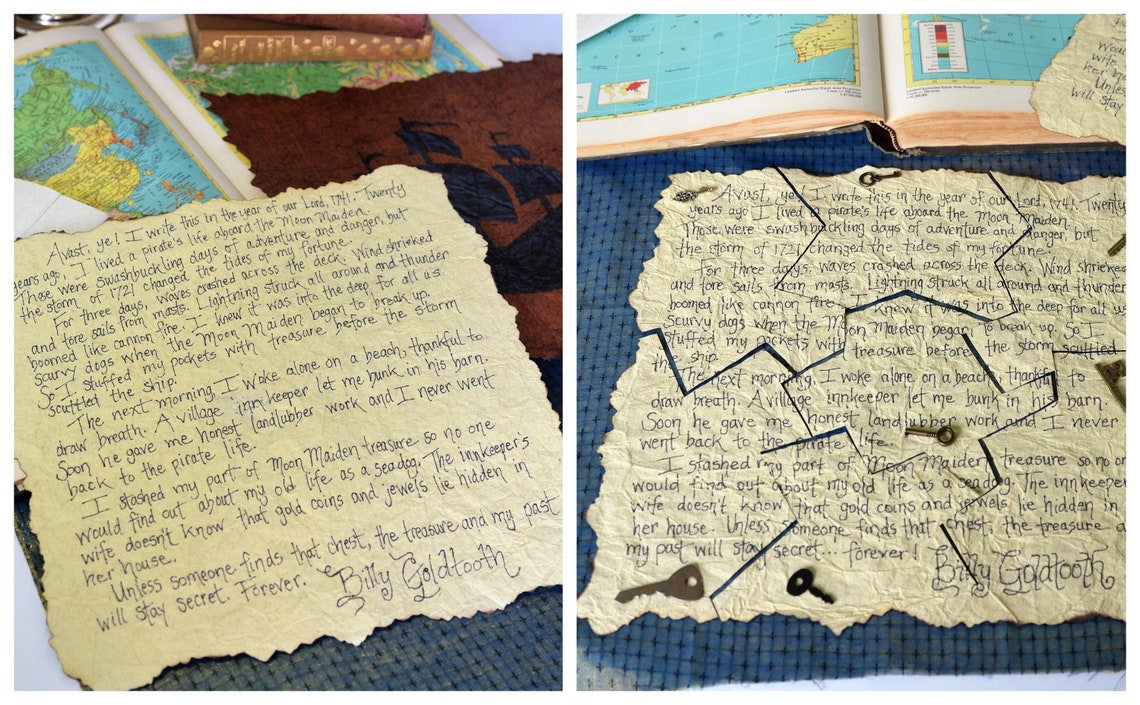 Avast, ye! I write this in the year of our Lord, 1741. Twenty
years ago, I lived a pirate's life aboard the Moon Maiden.
Those were swashbuckling days of adventure and danger, but
the storm of 1721 changed the tides of my fortune.
For three days, waves crashed across the deck. Wind shrieked
and tore sails from masts. Lightning struck all around and thunder
boomed like cannon fire. I knew it was into the deep for all us
scurvy dogs when the Moon Maiden began to break up.
So I stuffed my pockets with treasure before the storm
scuttled the ship.
The next morning, I woke alone on a beach, thankful to
draw breath. A village innkeeper let me bunk in his barn.
Soon he gave me honest landlubber work and I never went
back to the pirate life.
I stashed my part of Moon Maiden treasure so no one
would find out about my old life as a seadog. The innkeeper's
wife doesn't know that gold coins and jewels lie hidden in
her house.
Unless someone finds that chest, the treasure and my past
will stay secret. Forever.
Billy Goldtooth
Would
wife
her ho
Unless
will stay
Avast, ye! I write this in the year of our Lord, 1741. Twenty
years ago I lived a pirate's life aboard the Moon Maiden.
Those were swashbuckling days of adventure and danger, but
the storm of 1721 changed the tides of my fortune.
For three days, waves crashed across the deck. Wind shrieked
and tore sails from masts. Lightning struck all around and thunder
boomed like cannon fire. I knew it was into the deep for all us
scurvy dogs when the Moon Maiden began to break up. So I
stuffed my pockets with treasure before the storm scuttled
the ship.
The next morning, I woke alone on a beach, thankful to
draw breath. A village innkeeper let me bunk in his barn.
Soon he gave me honest landlubber work and I never
went back to the pirate life.
I stashed my part of Moon Maiden treasure so no on
would find out about my old life as a seadog. The innkeeper
wife doesn't know that gold coins and jewels lie hidden in
her house. Unless someone finds that chest, the treasure a
my past will stay secret... forever!
Billy Goldtooth